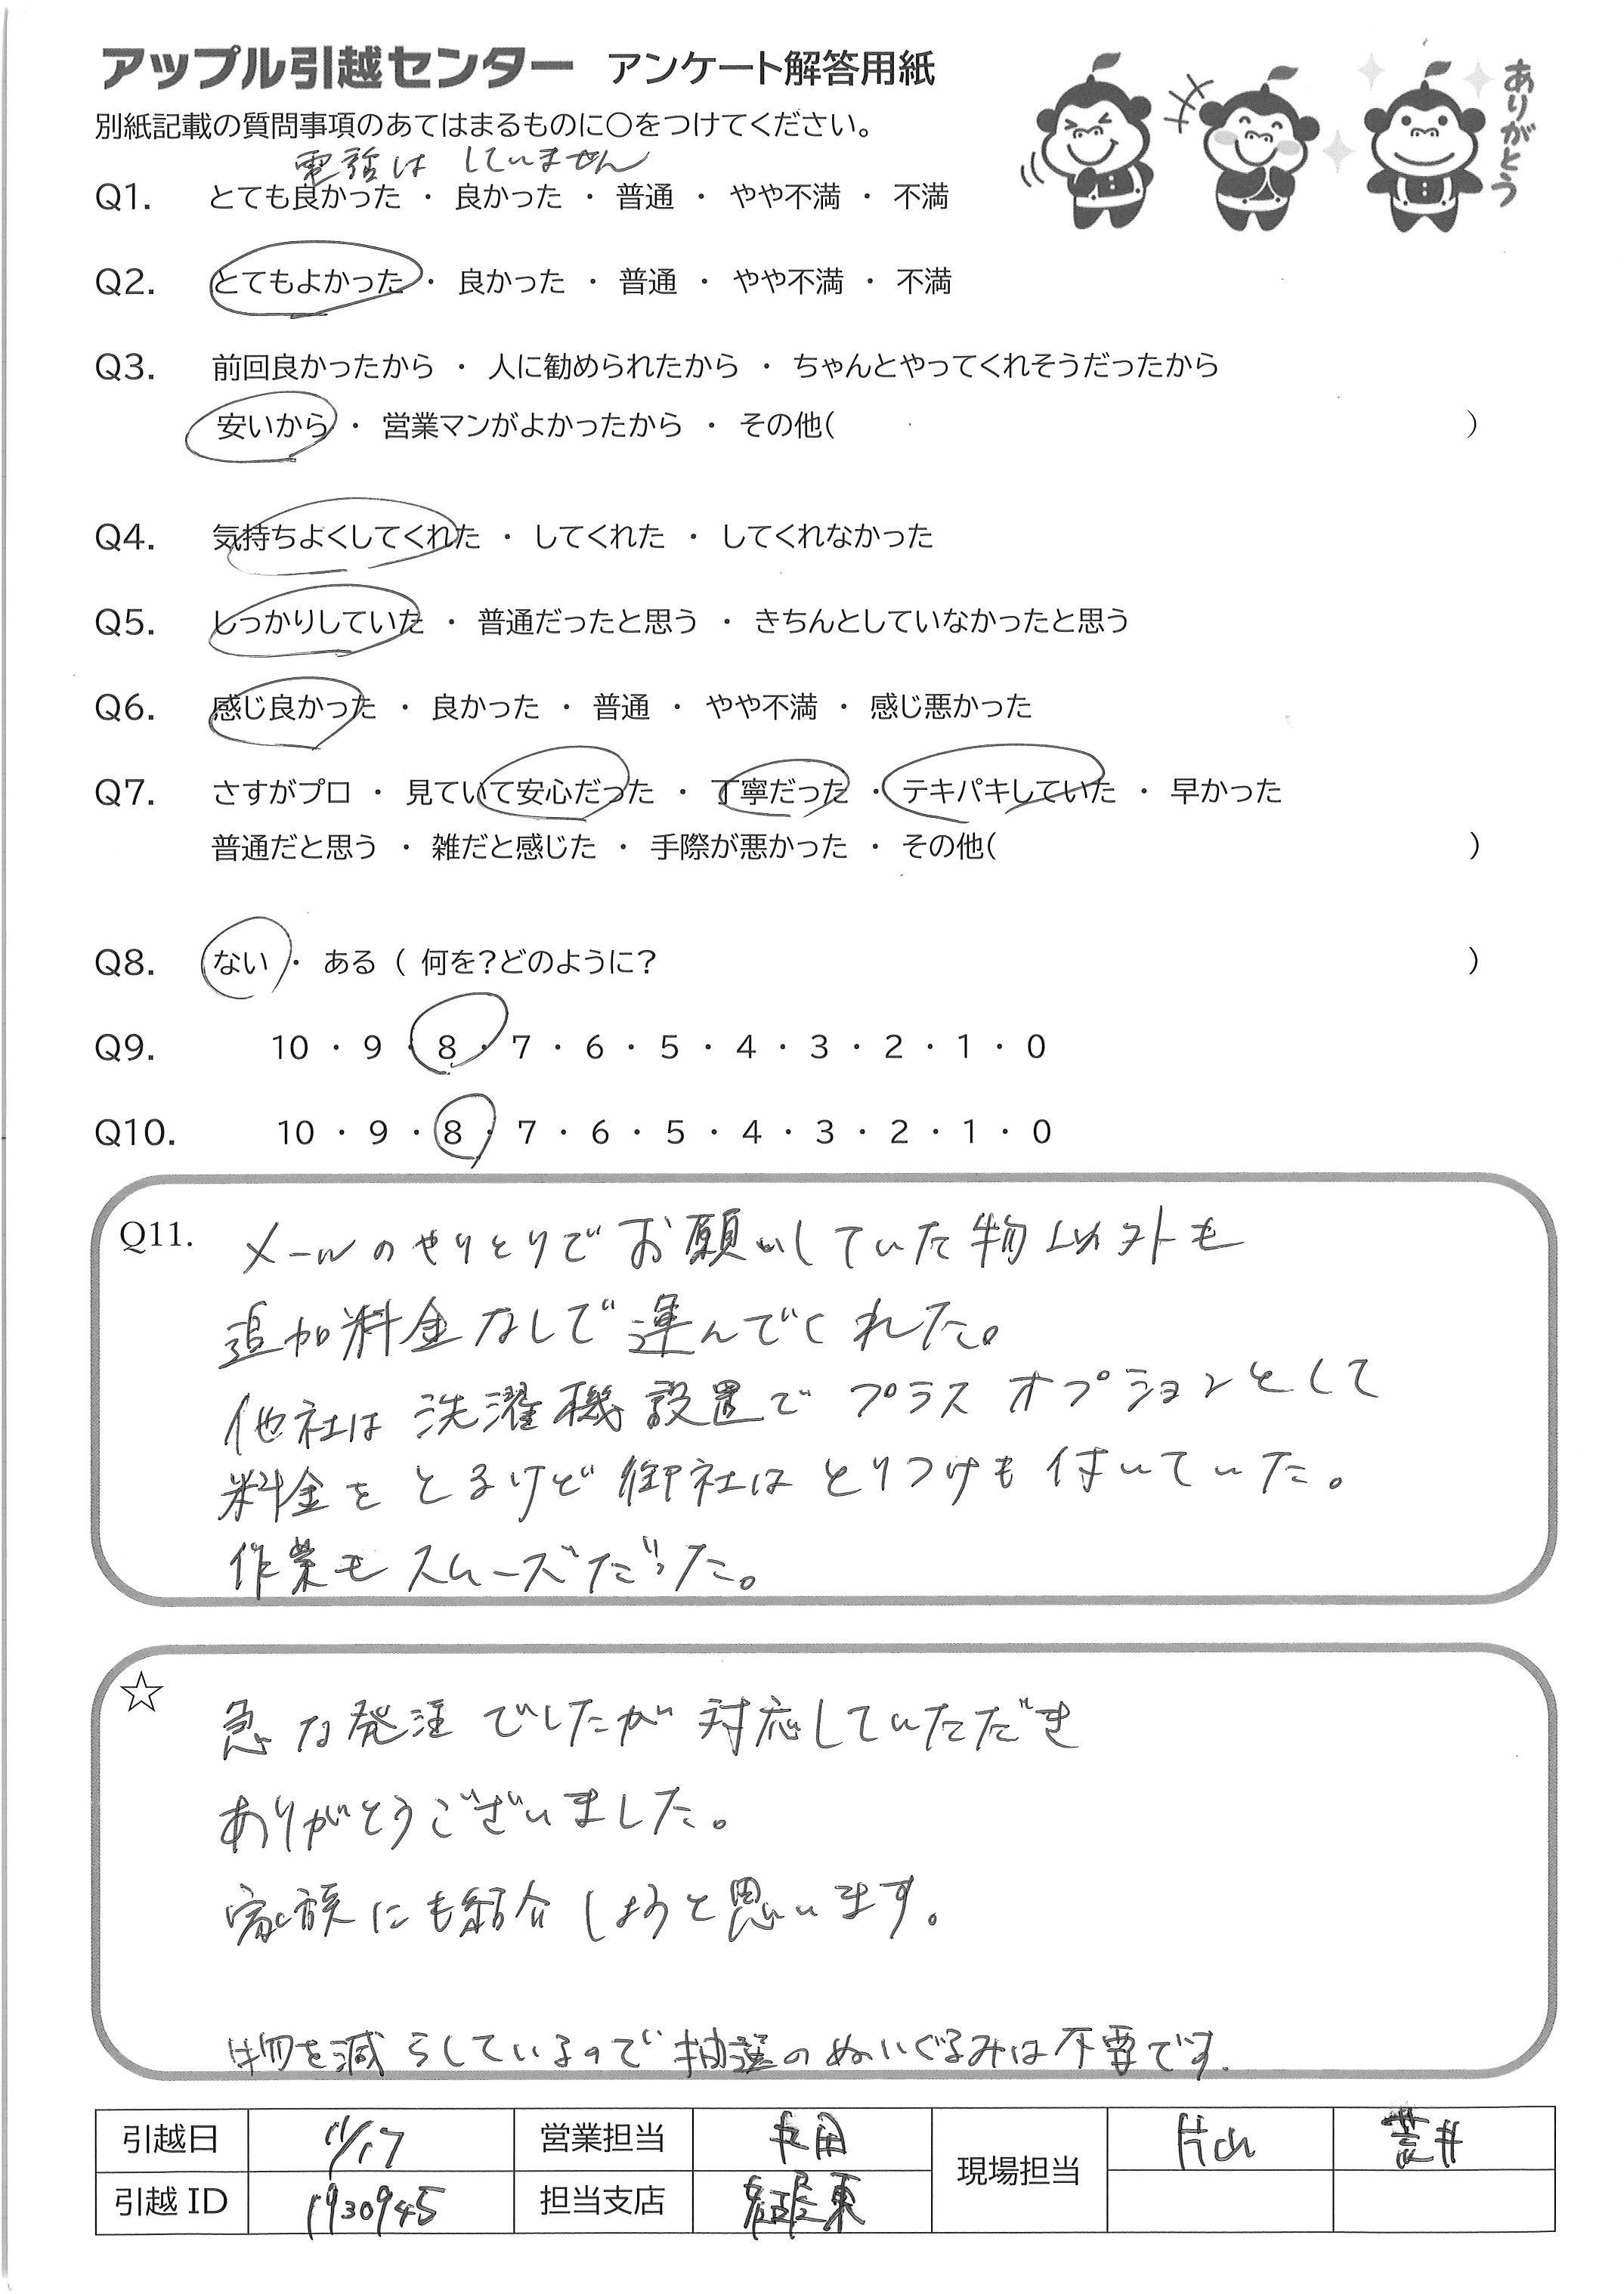 アップル引越センター アンケート解答用紙
ありがとう
別紙記載の質問事項のあてはまるものに○をつけてください。
電話は していません
Q1. とても良かった ・ 良かった ・ 普通 ・ やや不満 ・ 不満
Q2. とてもよかった ・ 良かった ・ 普通 ・ やや不満 ・ 不満
Q3. 前回良かったから ・ 人に勧められたから ・ ちゃんとやってくれそうだったから
安いから ・ 営業マンがよかったから ・ その他( )
Q4. 気持ちよくしてくれた ・ してくれた ・ してくれなかった
Q5. しっかりしていた ・ 普通だったと思う ・ きちんとしていなかったと思う
Q6. 感じ良かった ・ 良かった ・ 普通 ・ やや不満 ・ 感じ悪かった
Q7. さすがプロ ・ 見ていて安心だった ・ 丁寧だった ・ テキパキしていた ・ 早かった
普通だと思う ・ 雑だと感じた ・ 手際が悪かった ・ その他( )
Q8. ない ・ ある ( 何を?どのように? )
Q9. 10 ・ 9 ・ 8 ・ 7 ・ 6 ・ 5 ・ 4 ・ 3 ・ 2 ・ 1 ・ 0
Q10. 10 ・ 9 ・ 8 ・ 7 ・ 6 ・ 5 ・ 4 ・ 3 ・ 2 ・ 1 ・ 0
Q11. メールのやりとりでお願いしていた物以外も
追加料金なしで運んでくれた。
他社は洗濯機設置でプラスオプションとして
料金をとるけど御社はとりつけも付いていた。
作業もスムーズだった。
☆ 急な発注でしたが対応していただき
ありがとうございました。
家族にも紹介しようと思います。
物を減らしているので抽選のぬいぐるみは不要です.
引越日 11/17 営業担当 現場担当 片山 荒井
引越 ID 1930945 担当支店